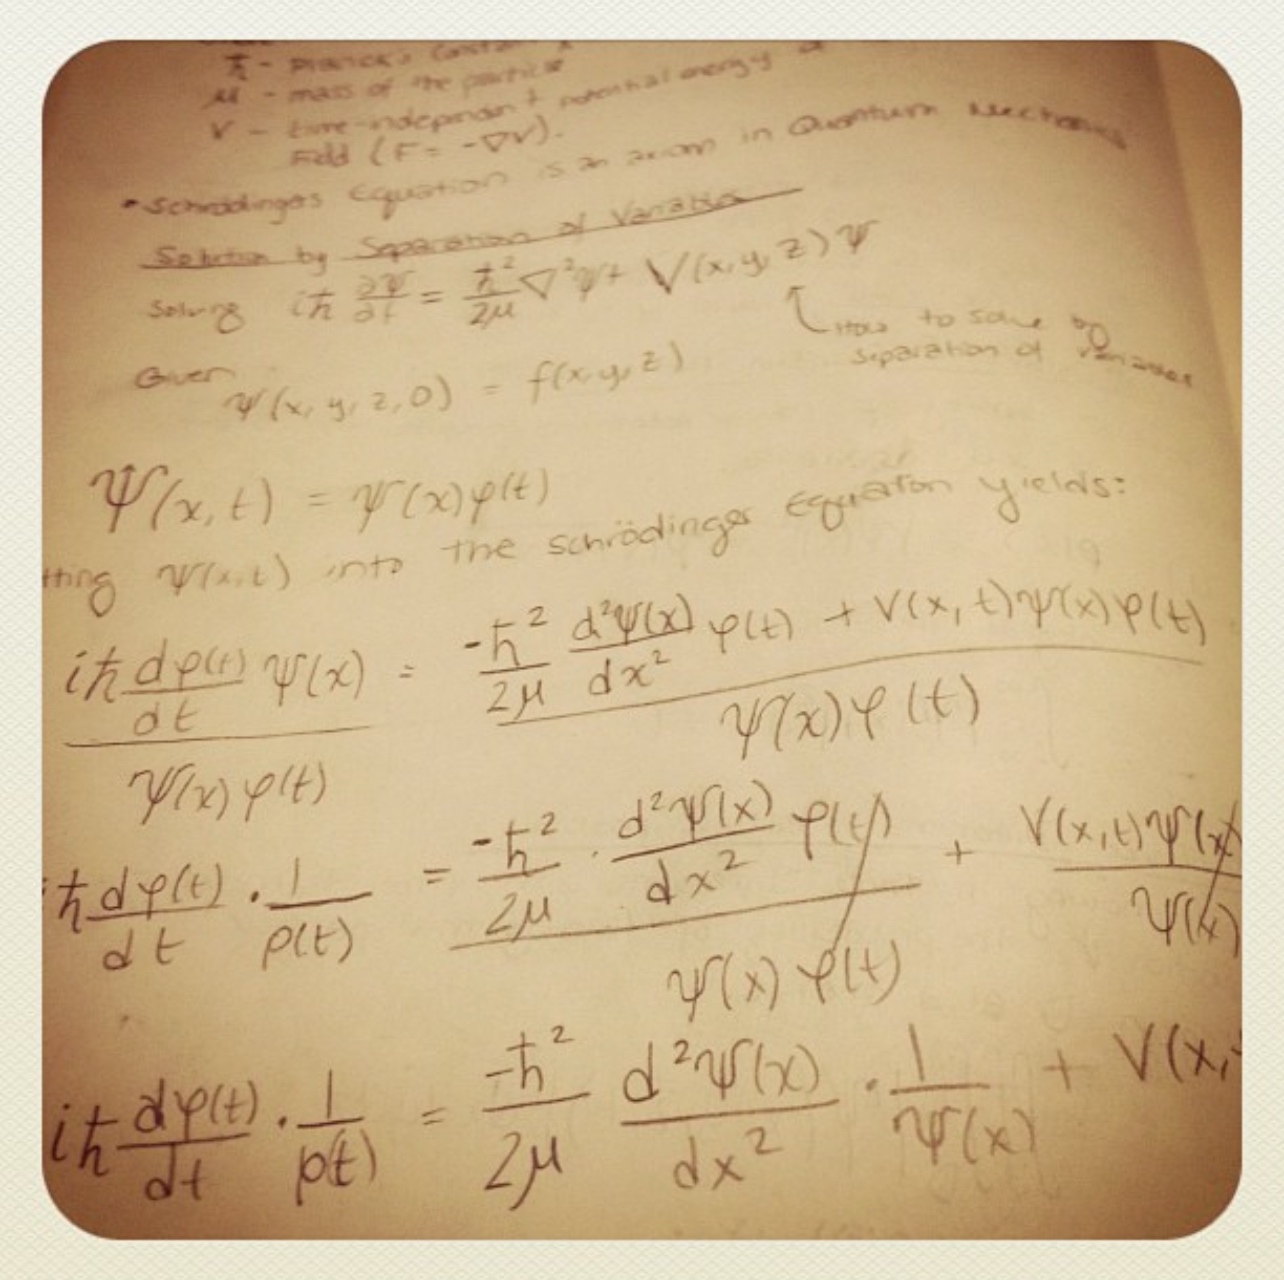 ħ - Planck's Constant
μ - mass of the particle
V - time-independant potential energy
Field (F = -∇V).
Schrödingers Equation is an axiom in Quantum Mechanics
Solution by Separation of Variables
Solving iħ ∂Ψ/∂t = ħ²/2μ ∇²ψ + V(x,y,z)Ψ
How to solve by
separation of variables
Given
Ψ(x, y, z, 0) = f(x,y,z)
Ψ(x,t) = ψ(x)φ(t)
tting Ψ(x,t) into the schrödinger Equation yields:
iħ dφ(t)/dt ψ(x) / ψ(x)φ(t) = -ħ²/2μ d²ψ(x)/dx² φ(t) + V(x,t)ψ(x)φ(t) / ψ(x)φ(t)
ħ dφ(t)/dt · 1/φ(t) = -ħ²/2μ · d²ψ(x)/dx² φ(t) / ψ(x)φ(t) + V(x,t)ψ(x) / ψ(x)
iħ dφ(t)/dt · 1/φ(t) = -ħ²/2μ d²ψ(x)/dx² · 1/ψ(x) + V(x,